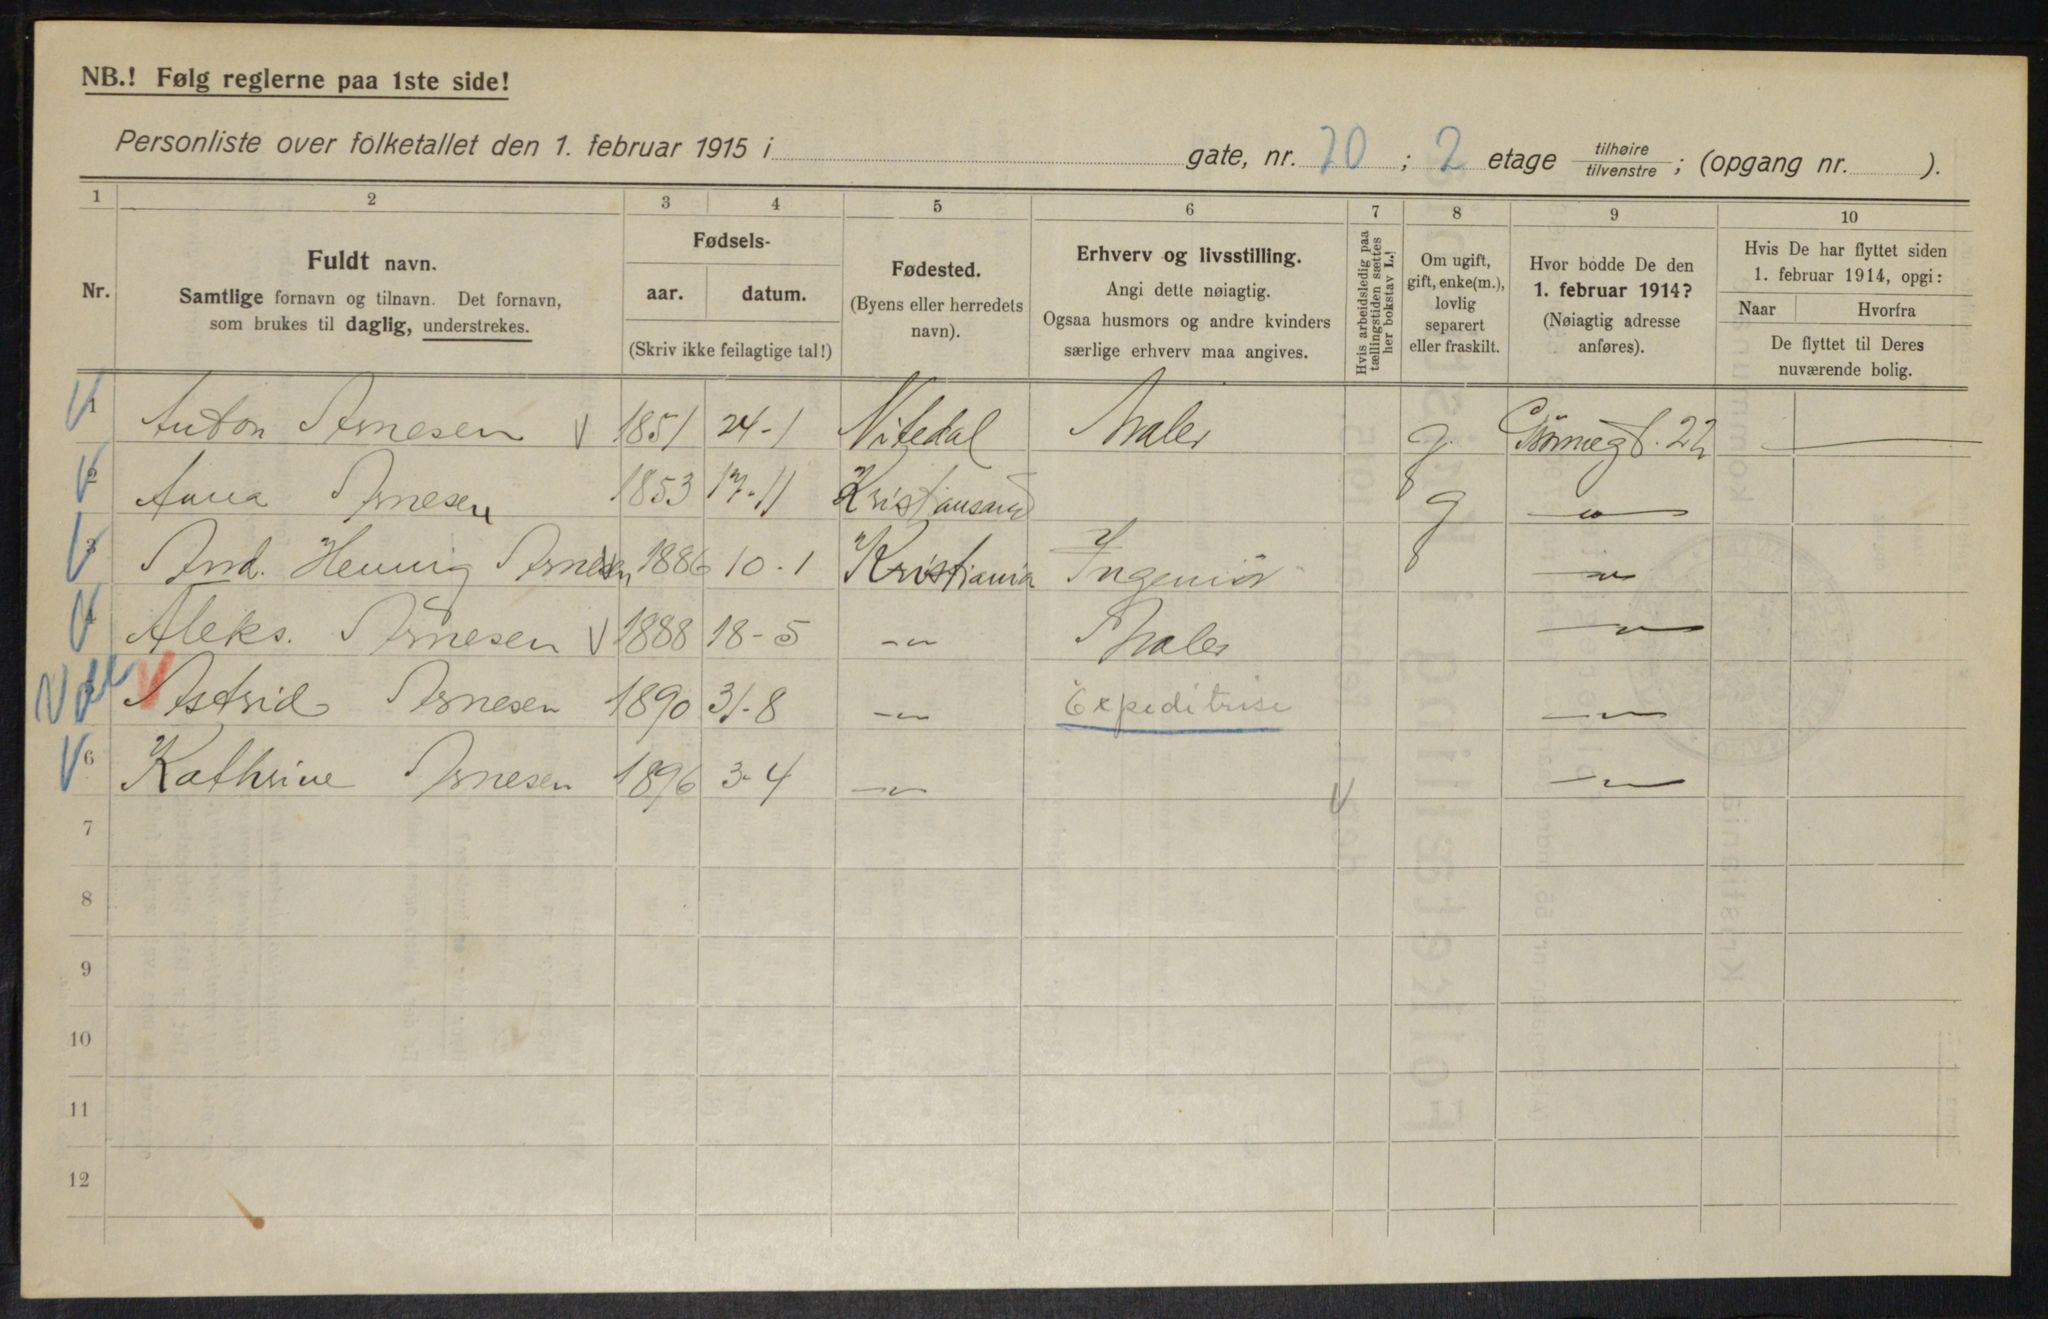 NB.! Følg reglerne paa 1ste side!
Personliste over folketallet den 1. februar 1915 i gate, nr. 20 ; 2 etage tilhøire / tilvenstre ; (opgang nr. ).
1 2 3 4 5 6 7 8 9 10
Nr.
Fuldt navn.
Samtlige fornavn og tilnavn. Det fornavn,
som brukes til daglig, understrekes.
Fødsels-
aar. datum.
(Skriv ikke feilagtige tal!)
Fødested.
(Byens eller herredets
navn).
Erhverv og livsstilling.
Angi dette nøiagtig.
Ogsaa husmors og andre kvinders
særlige erhverv maa angives.
Hvis arbeidsledig paa
tællingstiden sættes
her bokstav L.!
Om ugift,
gift, enke(m.),
lovlig
separert
eller fraskilt.
Hvor bodde De den
1. februar 1914?
(Nøiagtig adresse
anføres).
Hvis De har flyttet siden
1. februar 1914, opgi:
Naar Hvorfra
De flyttet til Deres
nuværende bolig.
1 Anton Arnesen 1851 24-1 Nitedal Maler g. 22
2 Anna Arnesen 1853 17-11 Kristiansand g — " —
3 Arnd. Hennig Arnesen 1886 10-1 Kristiania Ingeniør — " —
4 Aleks. Arnesen 1888 18-5 — " — Maler — " —
5 Astrid Arnesen 1890 31-8 — " — Expeditrise — " —
6 Kathrine Arnesen 1896 3-4 — " — — " —
7
8
9
10
11
12